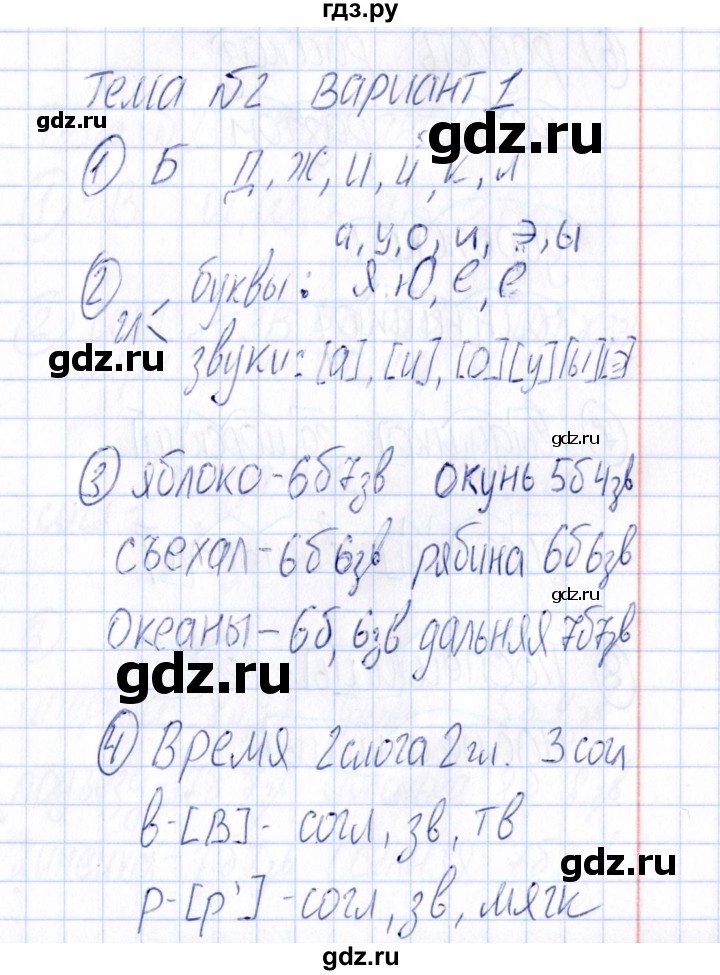 гдз.ру
Тема №2 Вариант 1
gdz.ru
gdz.ru
① Б Д, Ж, И, Й, К, Л
а, у, о, и, э, ы
② буквы: я ю, е, ё
гл <
gdz.ru
звуки: [а], [и], [о] [у] [ы] [э]
gdz.ru
③ яблоко - 6б 7зв окунь 5б 4зв
съехал - 6б 6зв рябина 6б 6зв
gdz.ru
океаны - 6б, 6зв дальняя 7б 7зв
gdz.ru
④ Время 2 слога 2 гл. 3 согл
в - [В] - согл, зв, тв
gdz.ru
р - [р'] - согл, зв, мягк
gdz.ru